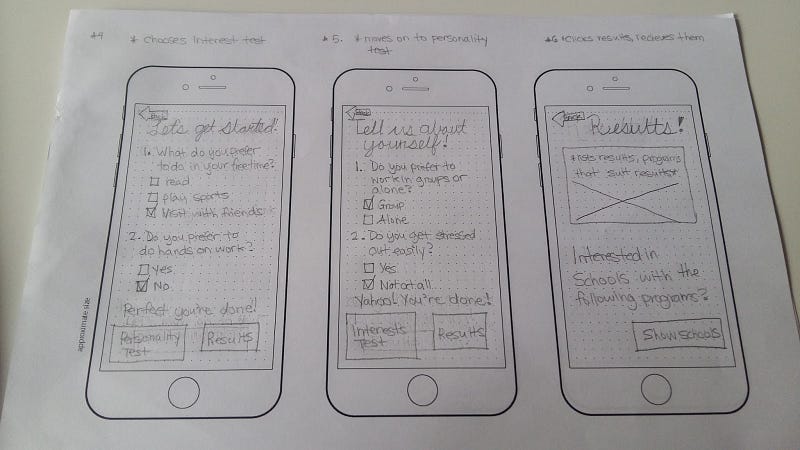 #4 * chooses Interest test
* 5. * moves on to personality
test
#6 *clicks results, recieves them
Back
Let's get started!
1. What do you prefer
to do in your freetime?
read
play sports
Visit with friends
2. Do you prefer to
do hands on work?
Yes
No
Perfect you're done!
Personality
Test
Results
approximate size
Back
Tell us about
yourself!
1. Do you prefer to
work in groups or
alone?
Group
Alone
2. Do you get stressed
out easily?
Yes
Not at all
Yahoo! You're done!
Interests
Test
Results
Back
Results!
*lists results, programs
that suit results*
Interested in
Schools with the
following programs?
Show schools